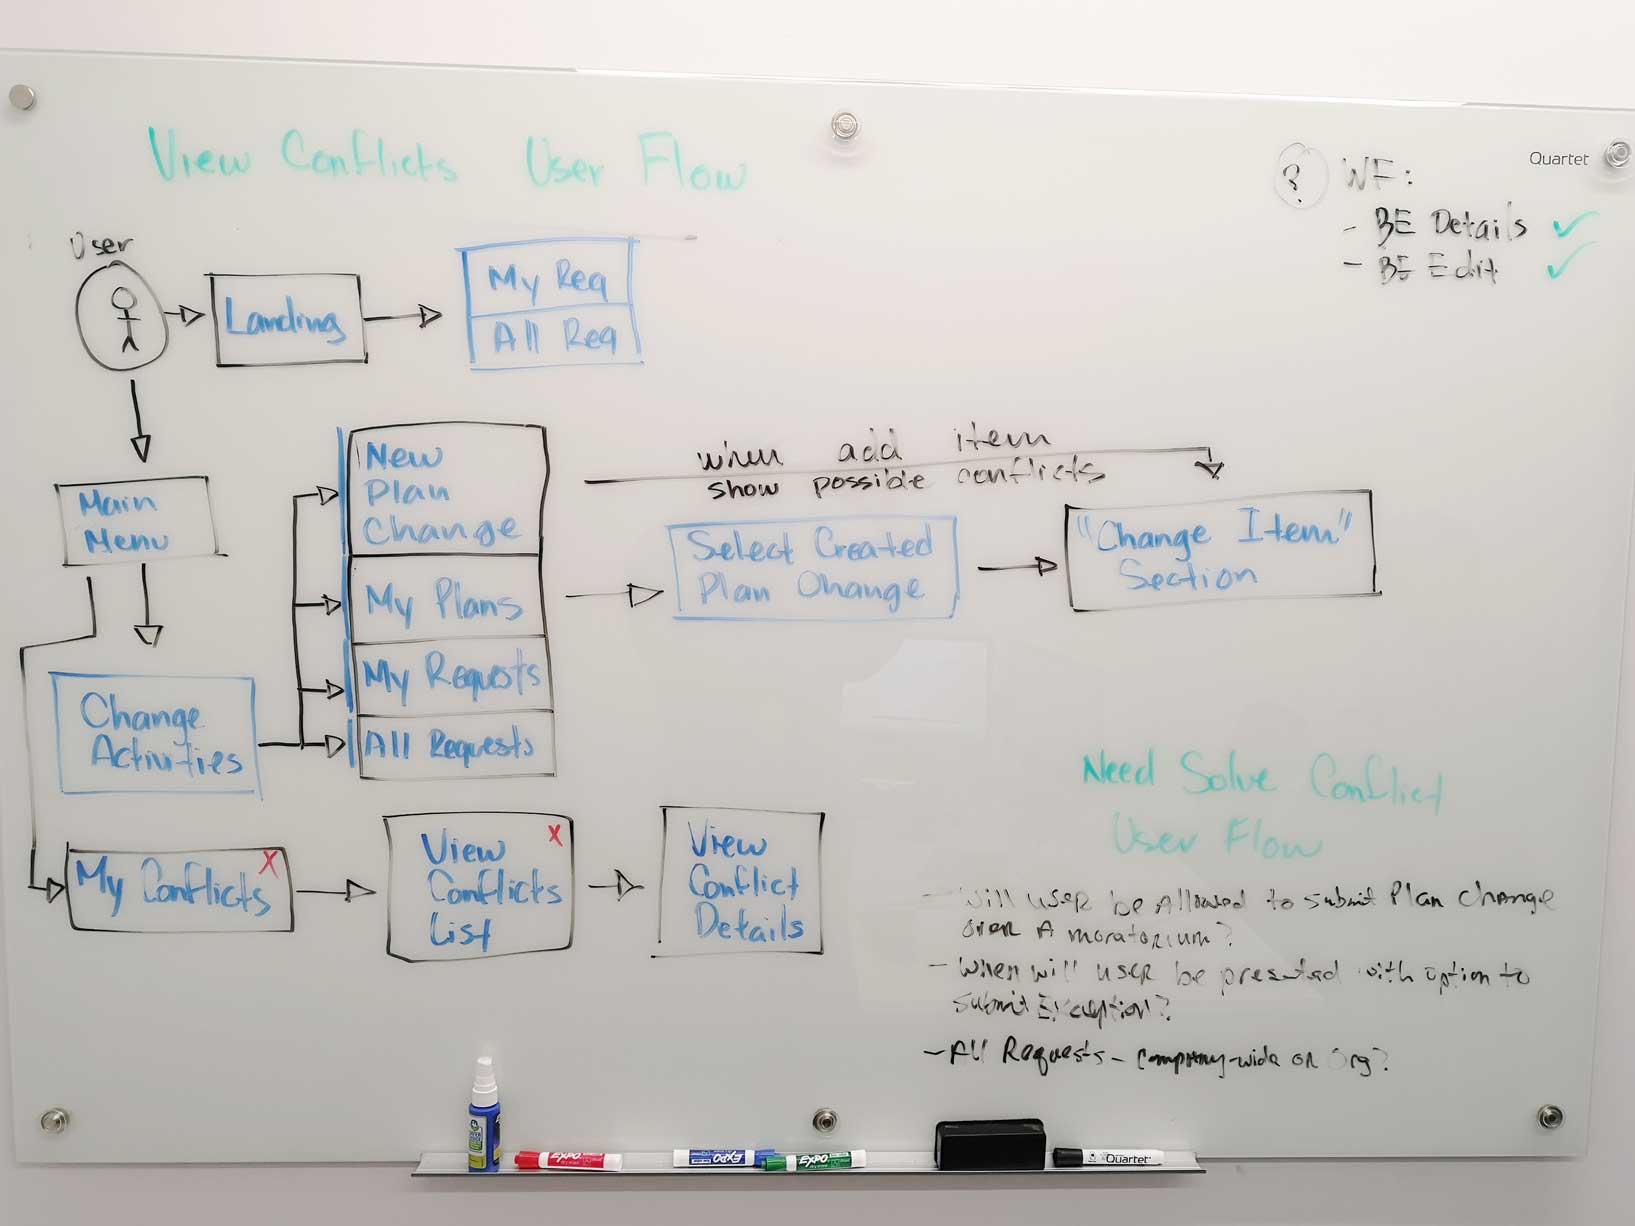 View Conflicts User Flow
Quartet
? WF:
- BE Details ✓
- BE Edit ✓
User
Landing
My Req
All Req
Main
Menu
New
Plan
Change
My Plans
My Requests
All Requests
when add item
show possible conflicts
Select Created
Plan Change
"Change Item"
Section
Change
Activities
My Conflicts X
View X
Conflicts
List
View
Conflict
Details
Need Solve Conflict
User Flow
- Will user be Allowed to submit Plan Change
over A moratorium?
- When will user be presented with option to
submit Exception?
- All Requests - Company-wide or Org?
EXPO
EXPO
EXPO
Quartet